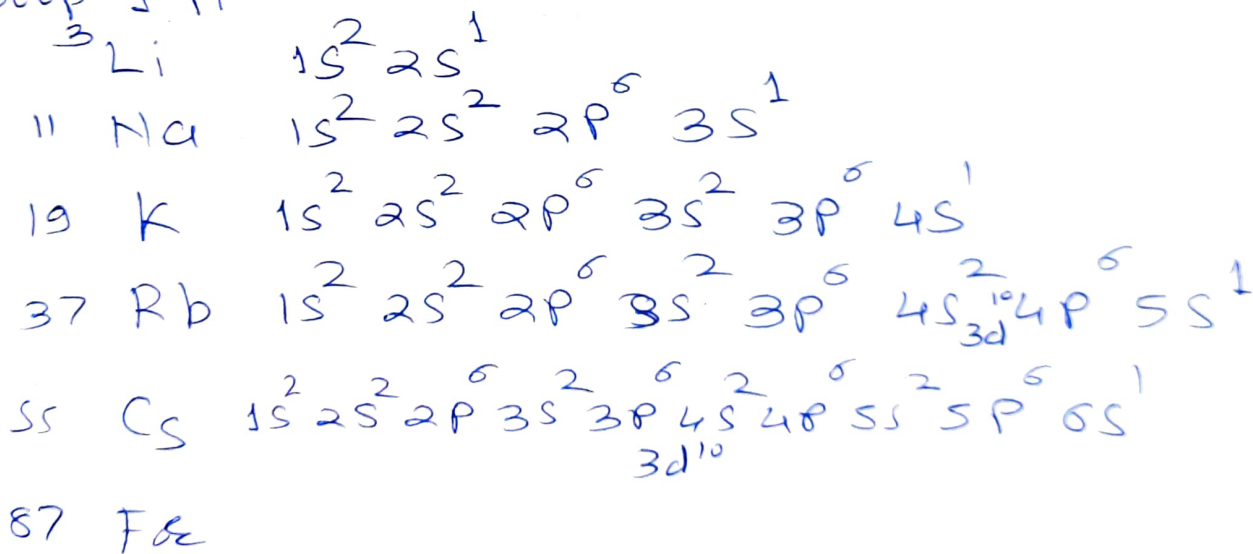 3 Li 1s² 2s¹
11 Na 1s² 2s² 2p⁶ 3s¹
19 K 1s² 2s² 2p⁶ 3s² 3p⁶ 4s¹
37 Rb 1s² 2s² 2p⁶ 3s² 3p⁶ 4s² 3d¹⁰ 4p⁶ 5s¹
55 Cs 1s² 2s² 2p⁶ 3s² 3p⁶ 4s² 4p⁶ 5s² 5p⁶ 6s¹
3d¹⁰
87